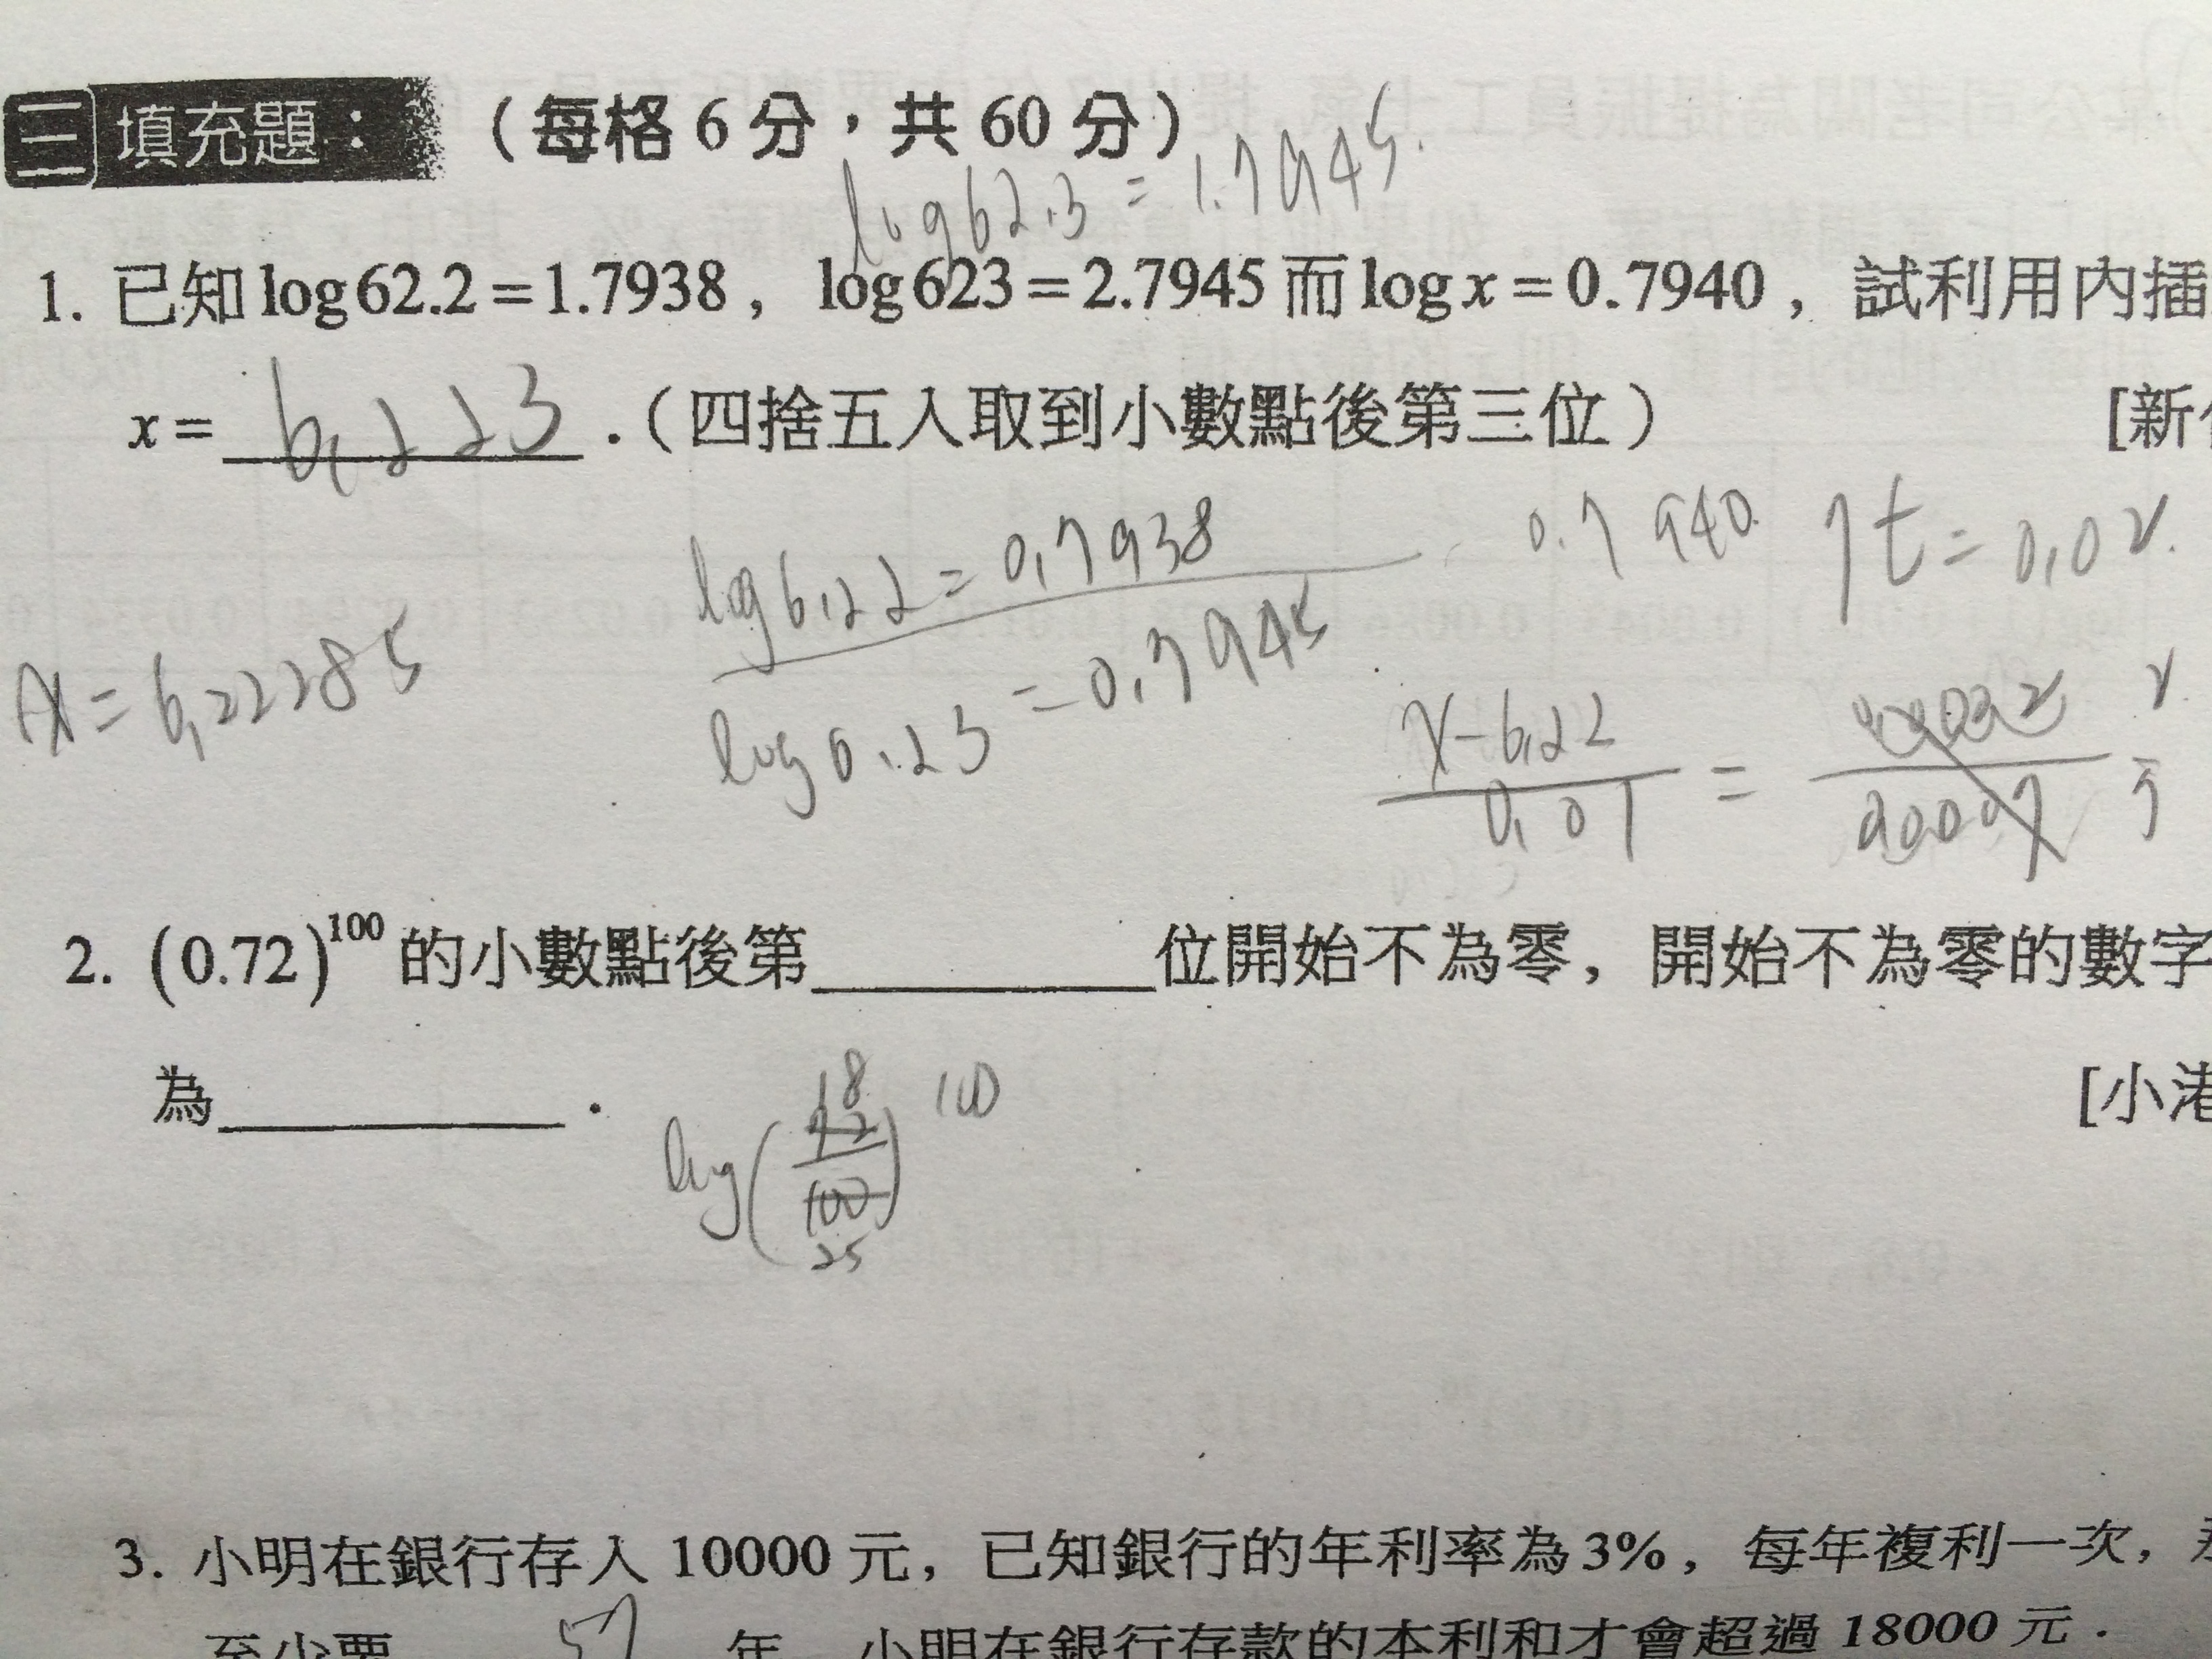 三 填充題：（每格 6 分，共 60 分）
log62.3 = 1.7945.
1. 已知 log 62.2 = 1.7938，log 623 = 2.7945 而 log x = 0.7940，試利用內插
x = 6.223 .（四捨五入取到小數點後第三位） [新
log 6.22 = 0.7938 0.7940 7t = 0.02
log 6.23 = 0.7945
x = 6.22285
x-6.22 / 0.01 = 2 / 7
2. (0.72)^100 的小數點後第 位開始不為零，開始不為零的數字
為 . [小港
log(72/100)^100
18
25
3. 小明在銀行存入 10000 元，已知銀行的年利率為 3%，每年複利一次，
至少要 57 年 小明在銀行存款的本利和才會超過 18000 元．